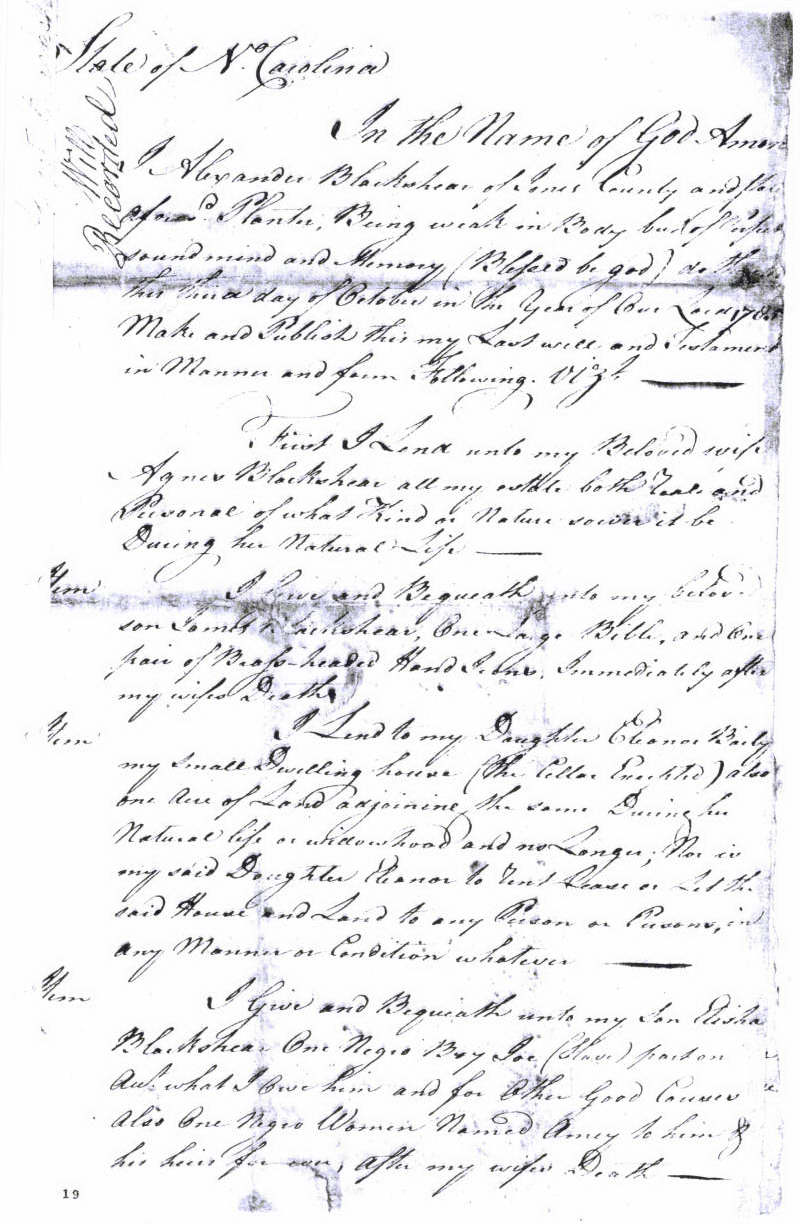 State of No. Carolina
Will
Recorded
In the Name of God Amen
I Alexander Blackshear of Jones County and State
afores'd Planter, Being weak in Body but of Perfect
sound mind and Memory (Blessed be god) do
this third day of October in the Year of Our Lord
Make and Publish this my Last will and Testament
in Manner and form Following. Vizt.
First I Lend unto my Beloved wife
Agnes Blackshear all my estate both Real and
Personal of what Kind or Nature soever it be
During her Natural Life
Item I Give and Bequeath unto my belov'd
son James Blackshear, One Large Bible, and One
pair of Brass-headed Hand Irons, Immediately after
my wifes Death
Item I Lend to my Daughter Eleanor Baily
my small Dwelling house (the Cellar Excepted) also
one Acre of Land adjoining the same During her
Natural life or widowhood and no Longer; Nor is
my said Daughter Eleanor to rent Lease or Let the
said House and Land to any Person or Persons, in
any Manner or Condition whatever
Item I Give and Bequeath unto my Son Elisha
Blackshear One Negro Boy Joe (Slave) part on
Act. what I Owe him and for Other Good Causes
also One Negro Women Named Amey to him &
his heirs for ever, after my wifes Death
19